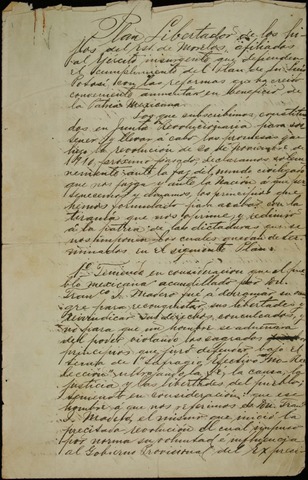 Plan Libertador de los hijos
del Est. de Morelos, afiliados
al Ejército insurgente que defienden
el cumplimiento del Plan de San Luis
Potosí con las reformas que ha creído
conveniente aumentar en beneficio de
la Patria Mexicana.
Los que subscribimos, constituí-
dos en Junta Revolucionaria para sos-
tener y llevar á cabo las promesas que
hizo la revolución de 20 de Noviembre de
1910, próximo pasado, declaramos solem-
nemente ante la faz del mundo civilizado
que nos juzga y ante la Nación á que
pertenecemos y amamos, los principios que
hemos formulado para acabar con la
tiranía que nos oprime y redimir
á la patria de las dictaduras que se
nos imponen los cuales quedan deter-
minados en el siguiente Plan:
1o. Teniendo en consideración que el pue-
blo mexicano acaudillado por Dn.
Franco. I. Madero fué á derramar su san-
gre para reconquistar sus libertades y
reivindicar sus derechos conculcados, y
no para que un hombre se adueñara
del poder violando los sagrados
principios que juró defender bajo el
lema de "Sufragio Efectivo" "No Re-
elección" ultrajando la fé, la causa, la
justicia y las libertades del pueblo;
teniendo en consideración: que ese
hombre á que nos referimos es Dn. Fran-
I. Madero, el mismo que inició la
precitada revolución el cual impuso
por norma su voluntad é influencia
al Gobierno Provisional del Ex Presi-